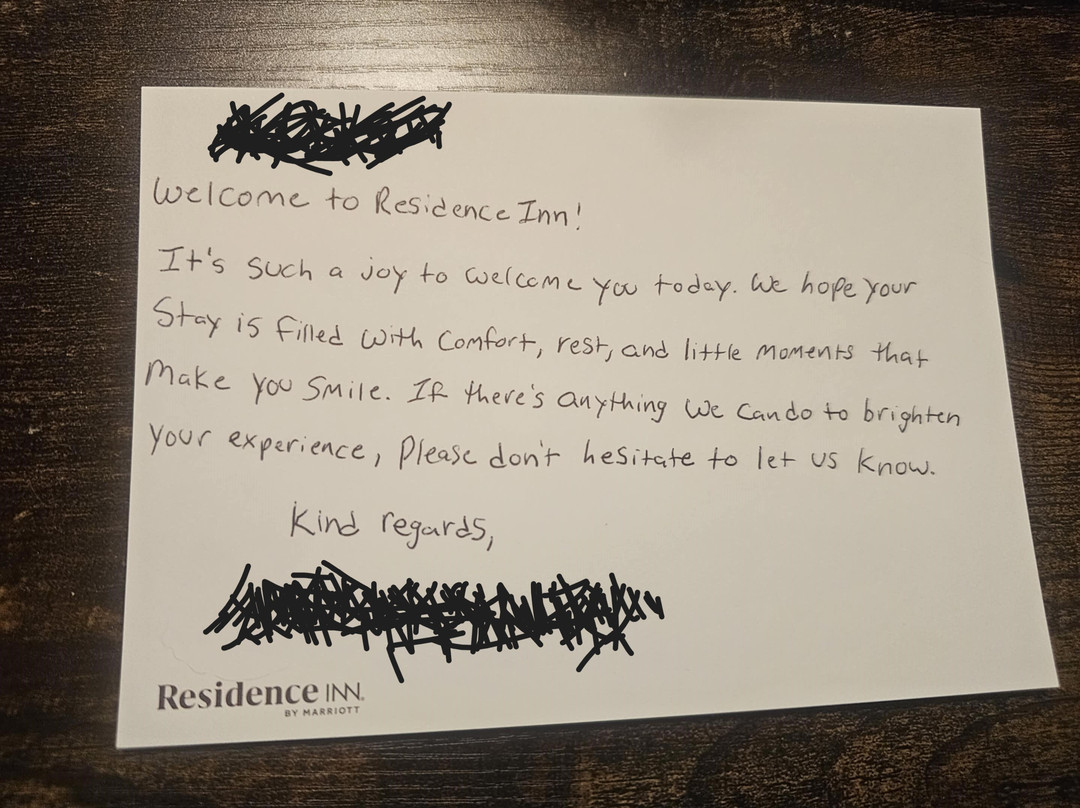 Welcome to Residence Inn!
It's such a joy to welcome you today. We hope your
Stay is filled with comfort, rest, and little moments that
Make you smile. If there's anything we can do to brighten
your experience, please don't hesitate to let us know.
Kind regards,
Residence INN.
BY MARRIOTT